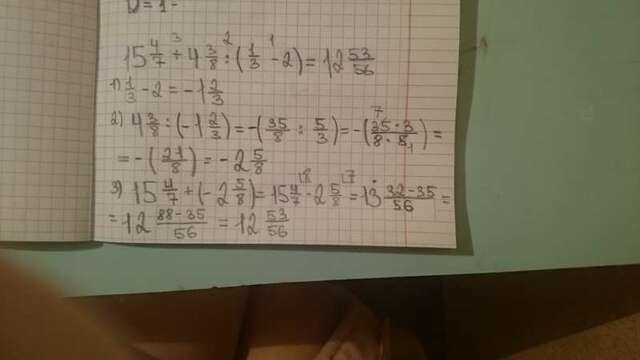 15 4/7 + 4 3/8 : (1/3 - 2) = 12 53/56
1) 1/3 - 2 = - 1 2/3
2) 4 3/8 : (- 1 2/3) = - (35/8 : 5/3) = - (35 · 3 / 8 · 5) =
= - (21/8) = - 2 5/8
3) 15 4/7 + (- 2 5/8) = 15 4/7 - 2 5/8 = 13 32-35/56 =
= 12 88-35/56 = 12 53/56